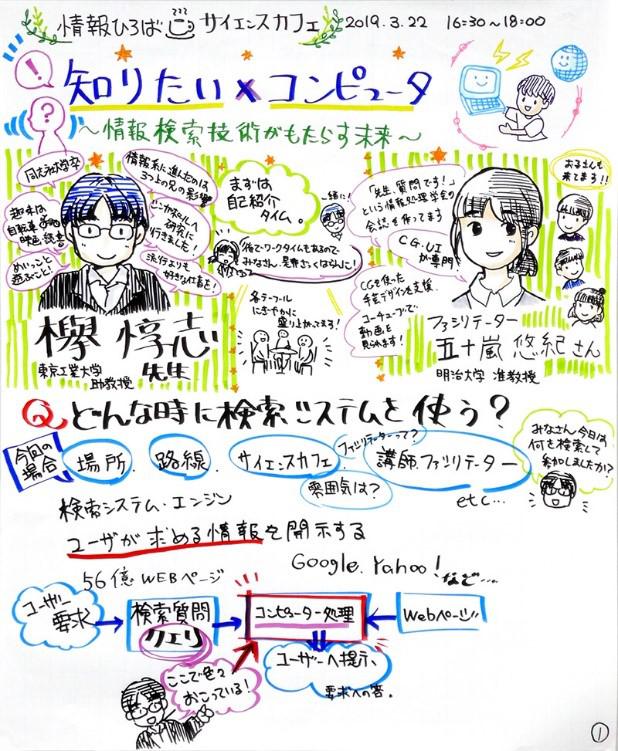 情報ひろば サイエンスカフェ 2019.3.22 16:30〜18:00
知りたい×コンピュータ
〜情報検索技術がもたらす未来〜
同志社大学卒
情報系に進んだのは
3つ上の兄の影響
趣味は
自転車
映画、読書
研究に
行きました!
めいっこと
遊ぶこと!
流行よりも
好きな仕事を!
まずは
自己紹介
タイム。
一緒に!
後でワークタイムもあるので
みなさん、是非ざっくばらんに!
各テーブル
にぎやかに
盛り上がってます!
「先生、質問です!」
という情報処理学会の
会誌を作ってます
CG.UI
が専門
CGを使った
手芸デザインを支援。
ユーチューブで
動画を
見られます!
お子さんも
来てます!!
欅 惇志 先生
東京工業大学
助教授
ファシリテーター
五十嵐 悠紀さん
明治大学 准教授
Q どんな時に検索システムを使う?
今回の
場合
場所
路線
サイエンスカフェ
ファシリテーターって?
講師.ファシリテーター
雰囲気は?
etc...
みなさん今日は
何を検索して
参加しましたか?
検索システム・エンジン
ユーザが求める情報を開示する
Google.Yahoo!
など...
56億WEBページ
ユーザー
要求
検索質問
クエリ
コンピューター処理
Webページ
ここで色々
おこっている!
ユーザーへ提示、
要求への答。
1